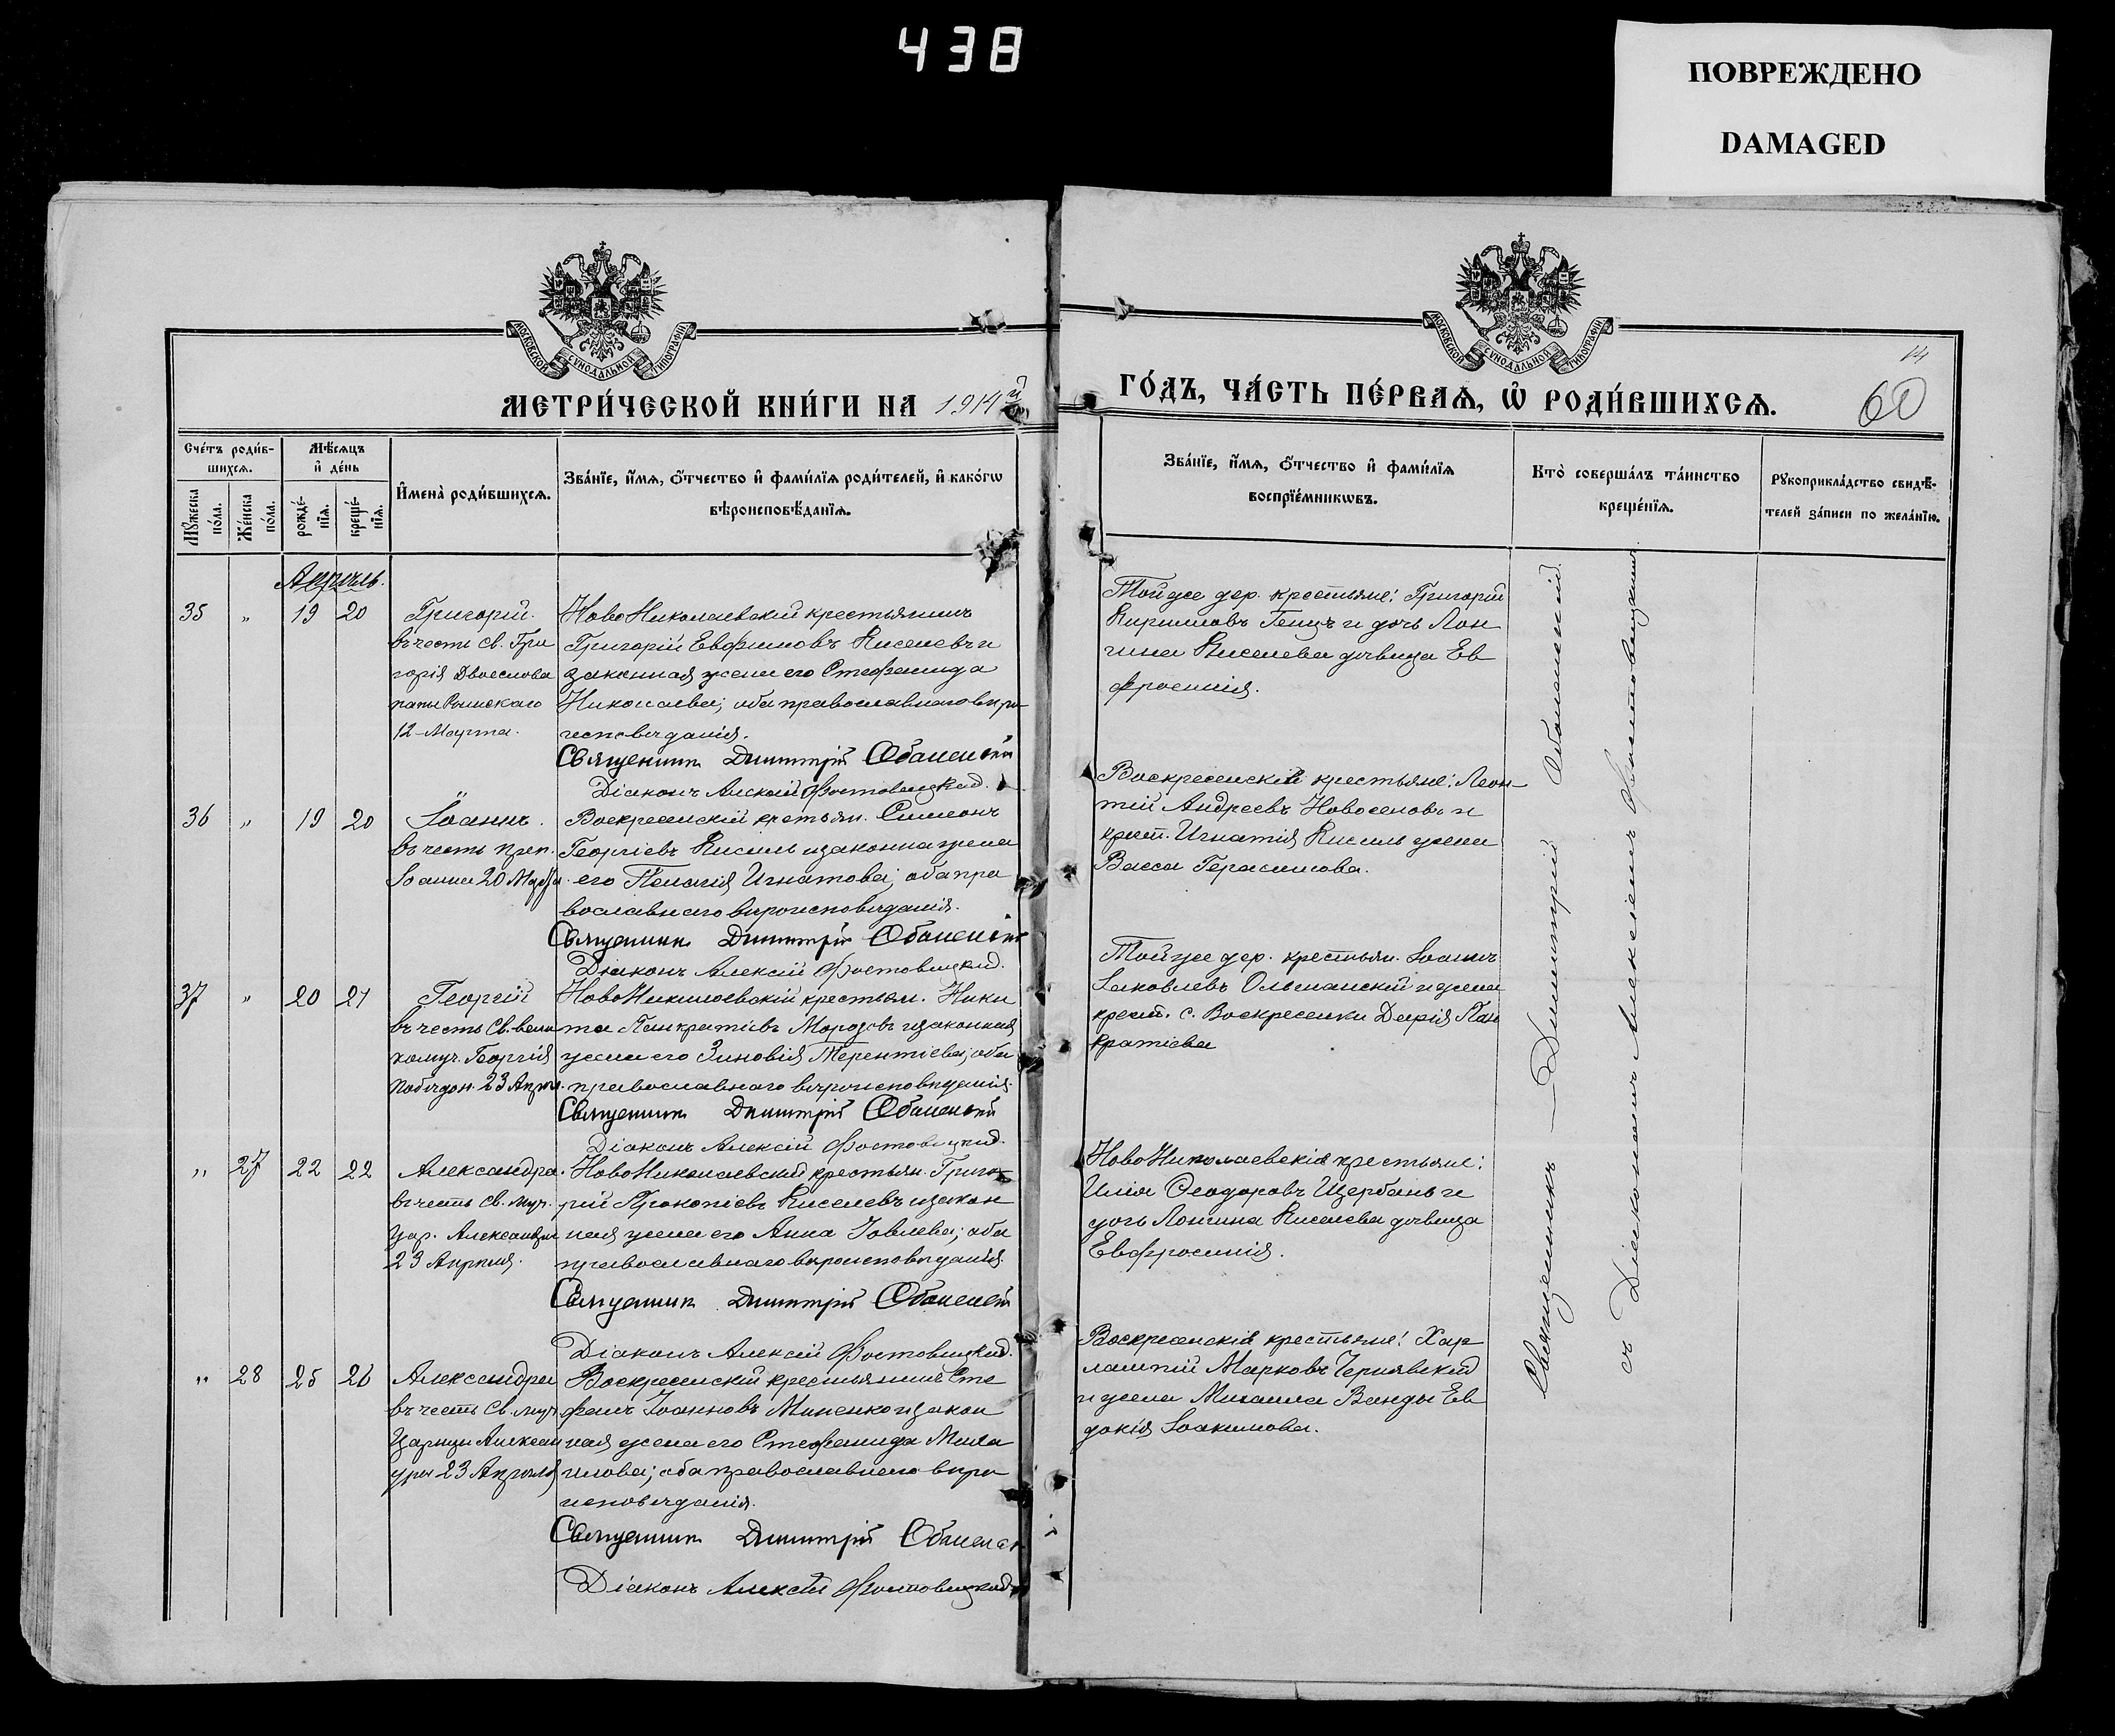 438
ПОВРЕЖДЕНО
DAMAGED
МОСКОВСКОЙ СУНОДАЛЬНОЙ ТИПОГРАФІИ
МОСКОВСКОЙ СУНОДАЛЬНОЙ ТИПОГРАФІИ
МЕТРИ́ЧЕСКОЙ КНИ́ГИ НА 1914й
ГО́ДЪ, ЧА́СТЬ ПЕ́РВАѦ, Ѡ҆ РОДИ́ВШИХСѦ.
14
60
Сче́тъ роди́в-
шихсѧ.
Мѣ́сѧцъ
и҆ де́нь
Мꙋ́жеска
по́ла.
Же́нска
по́ла.
рожде́-
нїѧ.
креще́-
нїѧ.
И҆мена̀ роди́вшихсѧ.
Зва́нїе, и҆́мѧ, ѻ҆́тчество и҆ фами́лїѧ роди́телей, и҆ како́гѡ
вѣроисповѣ́данїѧ.
Зва́нїе, и҆́мѧ, ѻ҆́тчество и҆ фами́лїѧ
воспрїе́мникѡвъ.
Кто̀ соверша́лъ та́инство
креще́нїѧ.
Рꙋкоприкла́дство свидѣ́-
телей за́писи по жела́нїю.
Апрѣль.
35 " 19 20 Григорій.
въ честь св. Гри
горія Двоеслова
папы Римскаго
12 Марта.
НовоНиколаевскій крестьянинъ
Григорій Евфимовъ Киселевъ и
законная жена его Стефанида
Николаева; оба православнаго вѣро
исповѣданія.
Священникъ Димитрій
Діаконъ Алексій
Той же дер. крестьяне: Григорій
Кирилловъ и дочь Лон
гина Киселева дѣвица Ев
фросинія.
36 " 19 20 Іоаннъ.
въ честь преп.
Іоанна 20 Марта.
Воскресенскій крестьян. Симеонъ
Георгіевъ Кисиль и законная жена
его Пелагія Игнатова; оба пра
вославнаго вѣроисповѣданія.
Священникъ Димитрій
Діаконъ Алексій
Воскресенскіе крестьяне: Леон-
тій Андреевъ Новоселовъ и
крест. Игнатія Кисиль жена
Васса Герасимова.
37 " 20 21 Георгій
въ честь Св. вели
комуч. Георгія
Побѣдон. 23 Апрѣл.
НовоНиколаевскій крестьян. Ники
та Панкратіевъ Морозовъ и законная
жена его Зиновія Терентіева; оба
православнаго вѣроисповѣданія.
Священникъ Димитрій
Діаконъ Алексій
Той же дер. крестьян. Іоаннъ
Іаковлевъ Ольшанскій и жена
крест. с. Воскресенки Дарія Пан
кратіева
" 27 22 22 Александра.
въ честь Св. муч.
Цар. Александры
23 Апрѣля.
НовоНиколаевскій крестьян. Григо
рій Прокопіевъ Киселевъ и закон
ная жена его Анна Іовлева; оба
православнаго вѣроисповѣданія.
Священникъ Димитрій
Діаконъ Алексій
НовоНиколаевскіе крестьяне:
Илія Ѳеодоровъ Щербань и
дочь Лонгина Киселева дѣвица
Евфросинія.
" 28 25 26 Александра
въ честь Св. муч.
Царицы Алексан
дры 23 Апрѣля
Воскресенскій крестьянинъ Сте
фанъ Іоанновъ Миненко и закон
ная жена его Стефанида Миха
илова; оба православнаго вѣро
исповѣданія.
Священникъ Димитрій
Діаконъ Алексій
Воскресенскіе крестьяне: Хар
лампій Марковъ Чернявскій
и жена Михаила Ванды Ев
докія Іоакимова.
Священникъ Димитрій
съ Діакономъ Алексіемъ